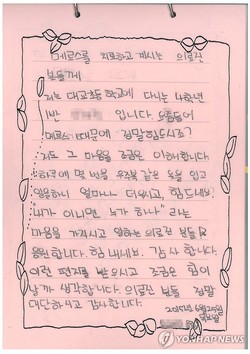 메르스를 치료하고 계시는 의료진
분들께
저는 대교초등학교에 다니는 4학년
1반 입니다. 요즘들어
메르스 때문에 정말 힘드시죠?
저도 그 마음을 조금은 이해합니다.
하루에 몇 번을 우주복 같은 옷을 입고
얼마나 더우시고, 힘드세요?
"내가 아니면 누가 하나" 라는
마음을 가지시고 일하는 의료진 분들
응원합니다. 힘 내세요. 감사 합니다.
이런 편지를 받으시고 조금은 힘이
날거라 생각합니다. 의료진 분들 정말
대단하시고 감사합니다.
2015년 6월 25일
목요일
YONHAP NEWS